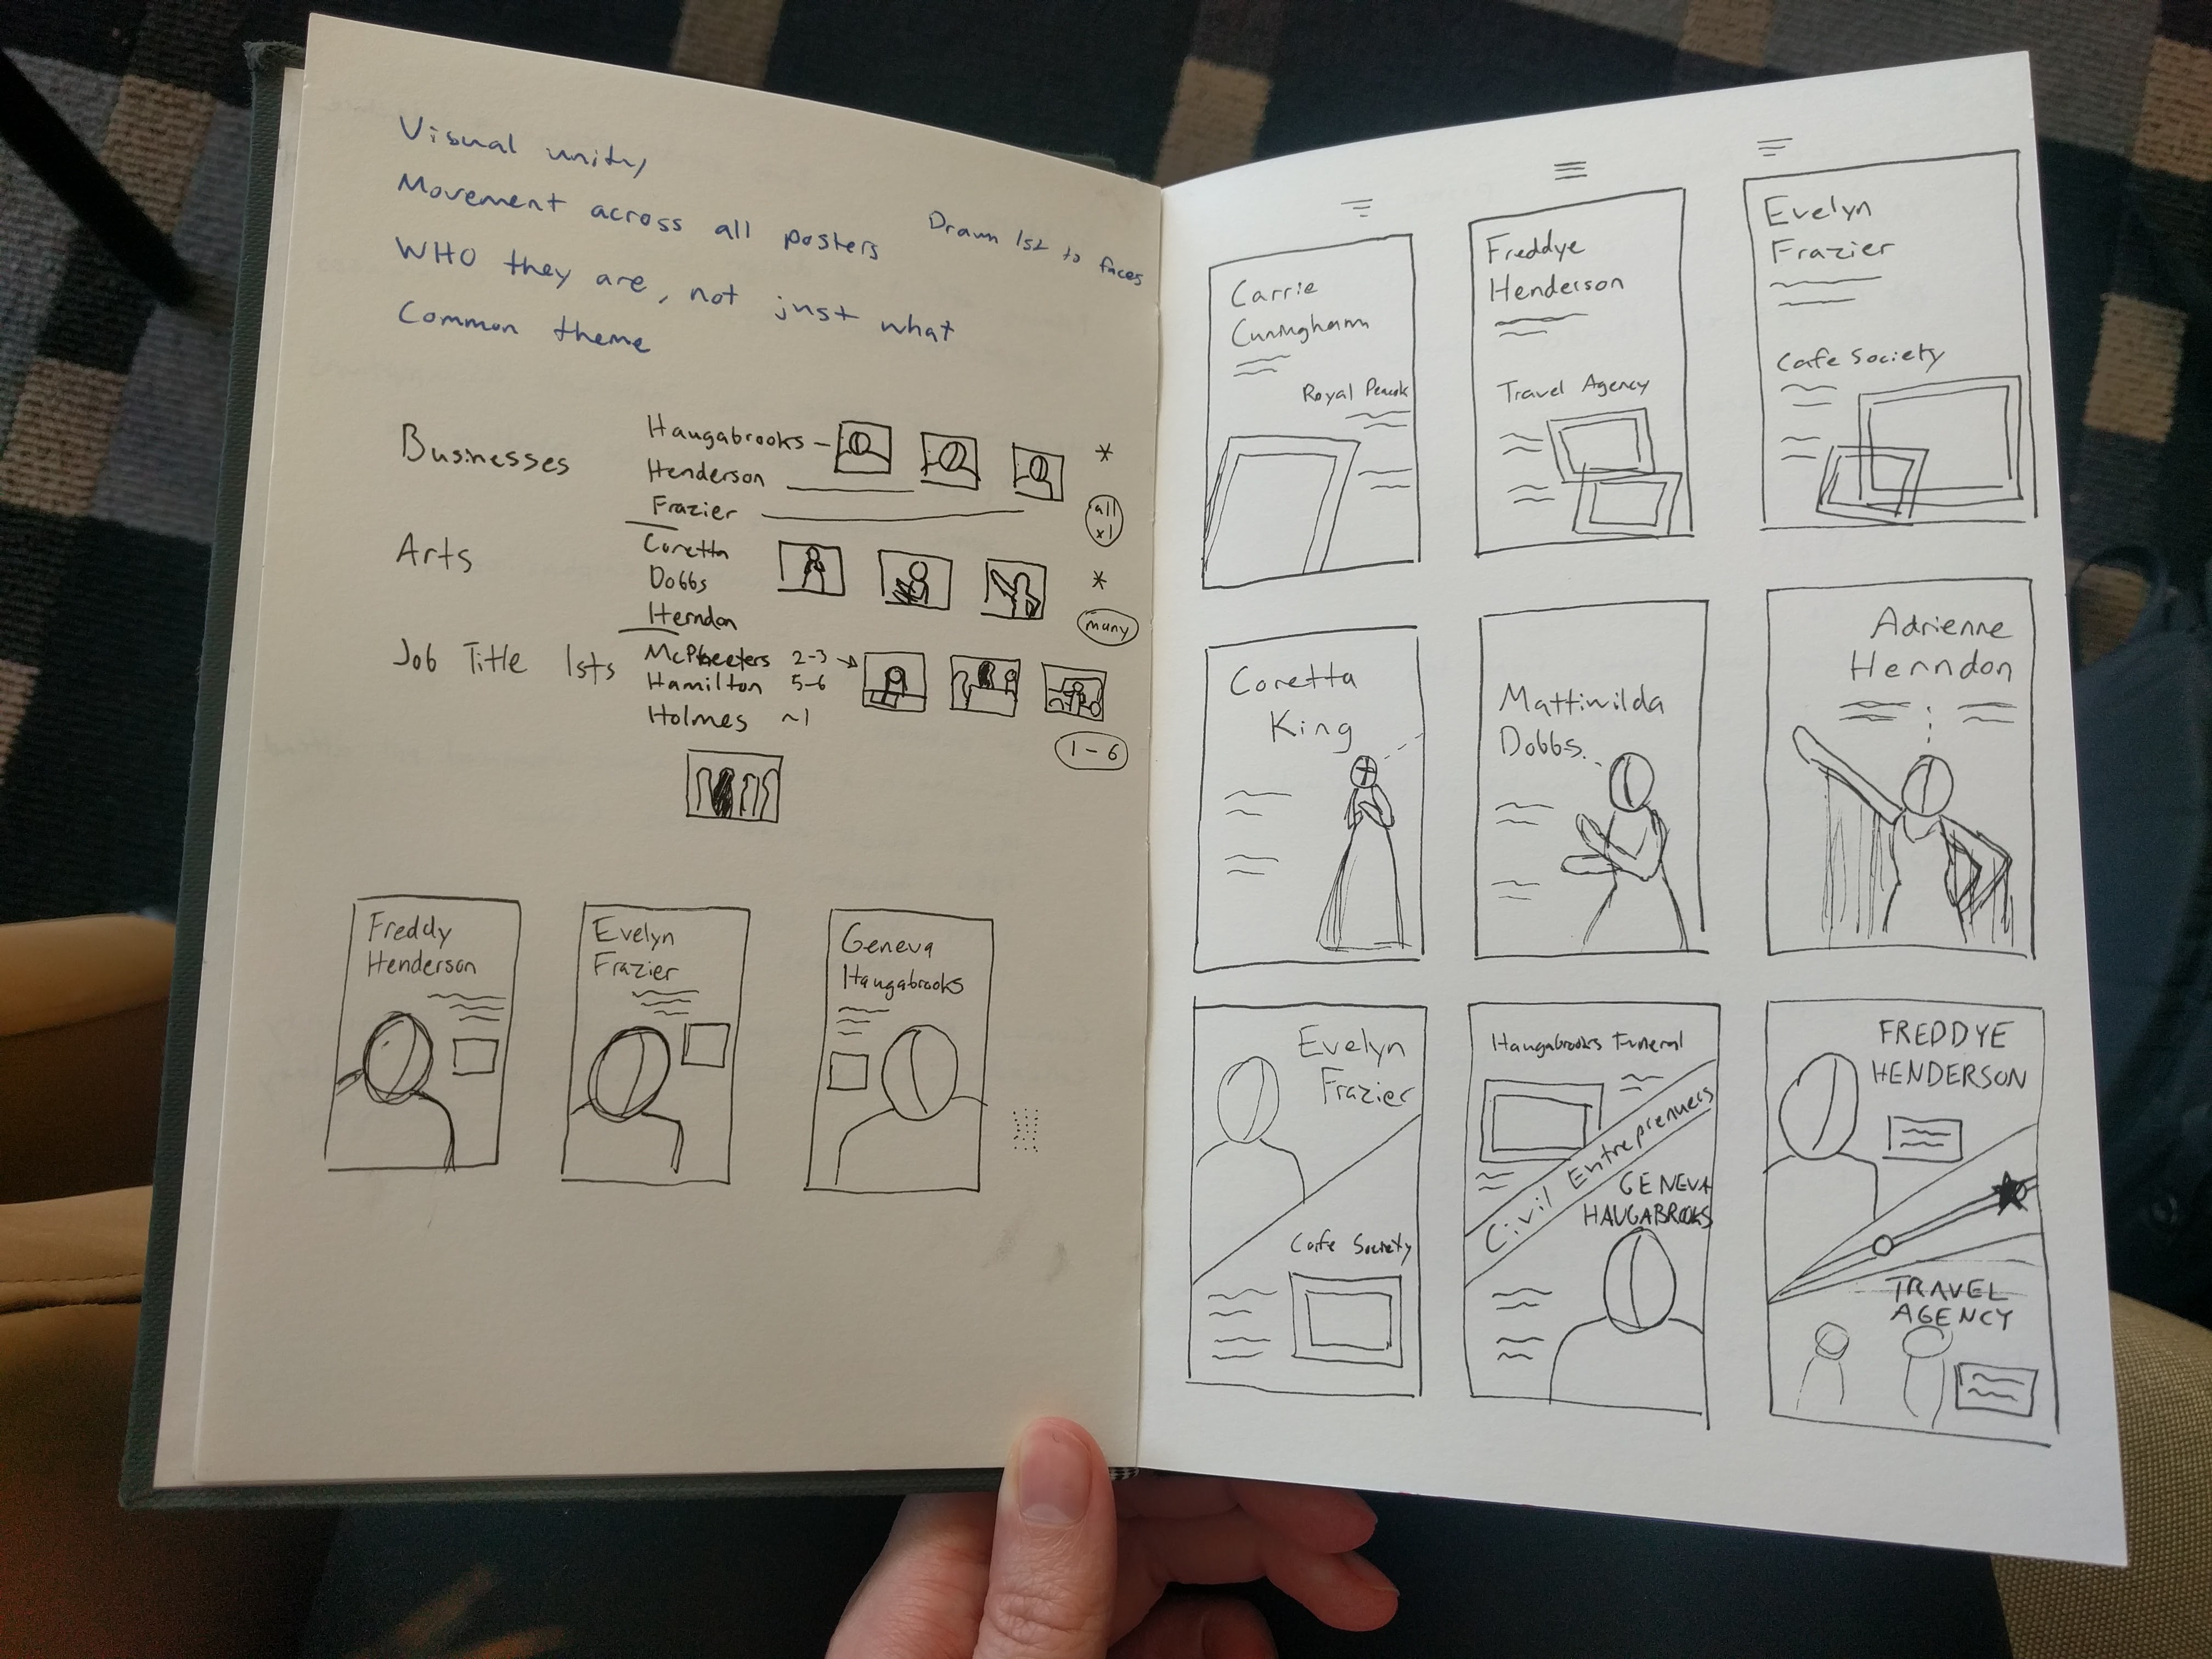 Visual unity
Movement across all posters
Drawn 1st to faces
WHO they are, not just what
Common theme
Businesses
Haugabrooks
Henderson
Frazier
*
all
x1
Arts
Coretta
Dobbs
Herndon
*
many
Job Title 1sts
McPheeters 2-3
Hamilton 5-6
Holmes ~1
1-6
Freddy
Henderson
Evelyn
Frazier
Geneva
Haugabrooks
Carrie
Cunningham
Royal Peacok
Freddye
Henderson
Travel Agency
Evelyn
Frazier
Cafe Society
Coretta
King
Mattiwilda
Dobbs
Adrienne
Herndon
Evelyn
Frazier
Cafe Society
Haugabrooks Funeral
Civil Entreprenuers
GENEVA
HAUGABROOKS
FREDDYE
HENDERSON
TRAVEL
AGENCY